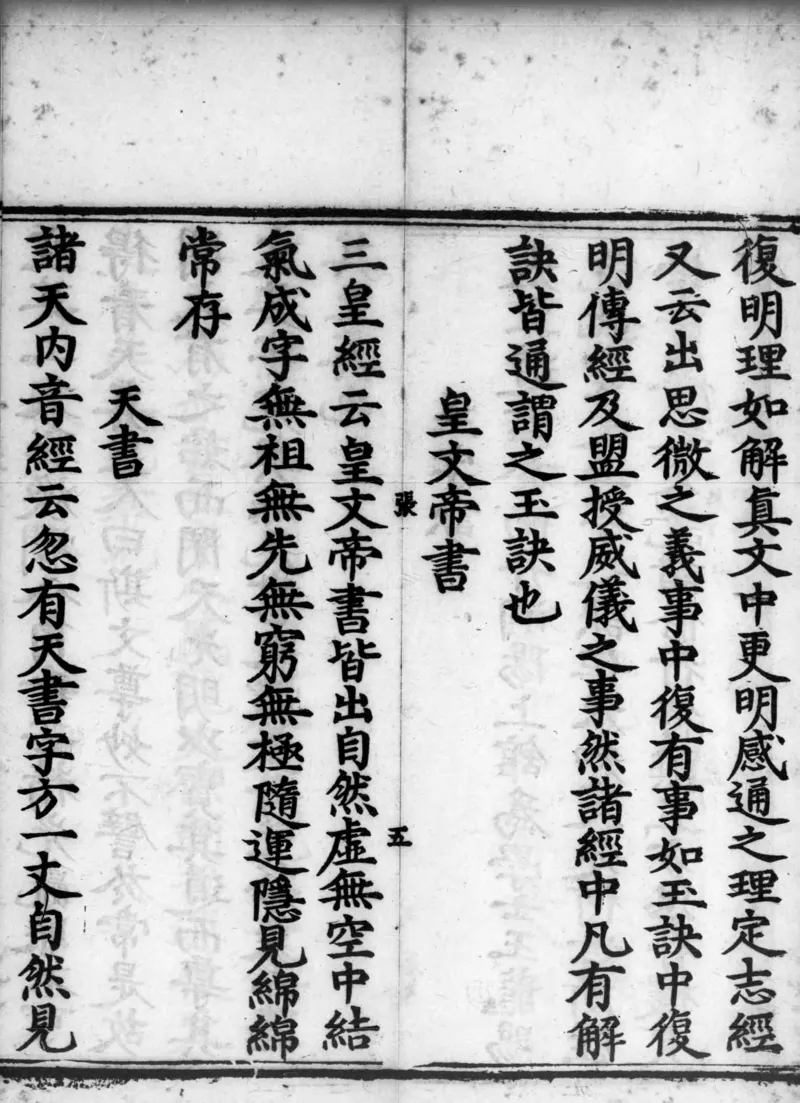 復明理如解真文中更明感通之理定志經
又云出思微之義事中復有事如玉訣中復
明傳經及盟授威儀之事然諸經中凡有解
訣皆通謂之玉訣也
皇文帝書
張 五
三皇經云皇文帝書皆出自然虛無空中結
氣成字無祖無先無窮無極隨運隱見綿綿
常存
天書
諸天内音經云忽有天書字方一丈自然見